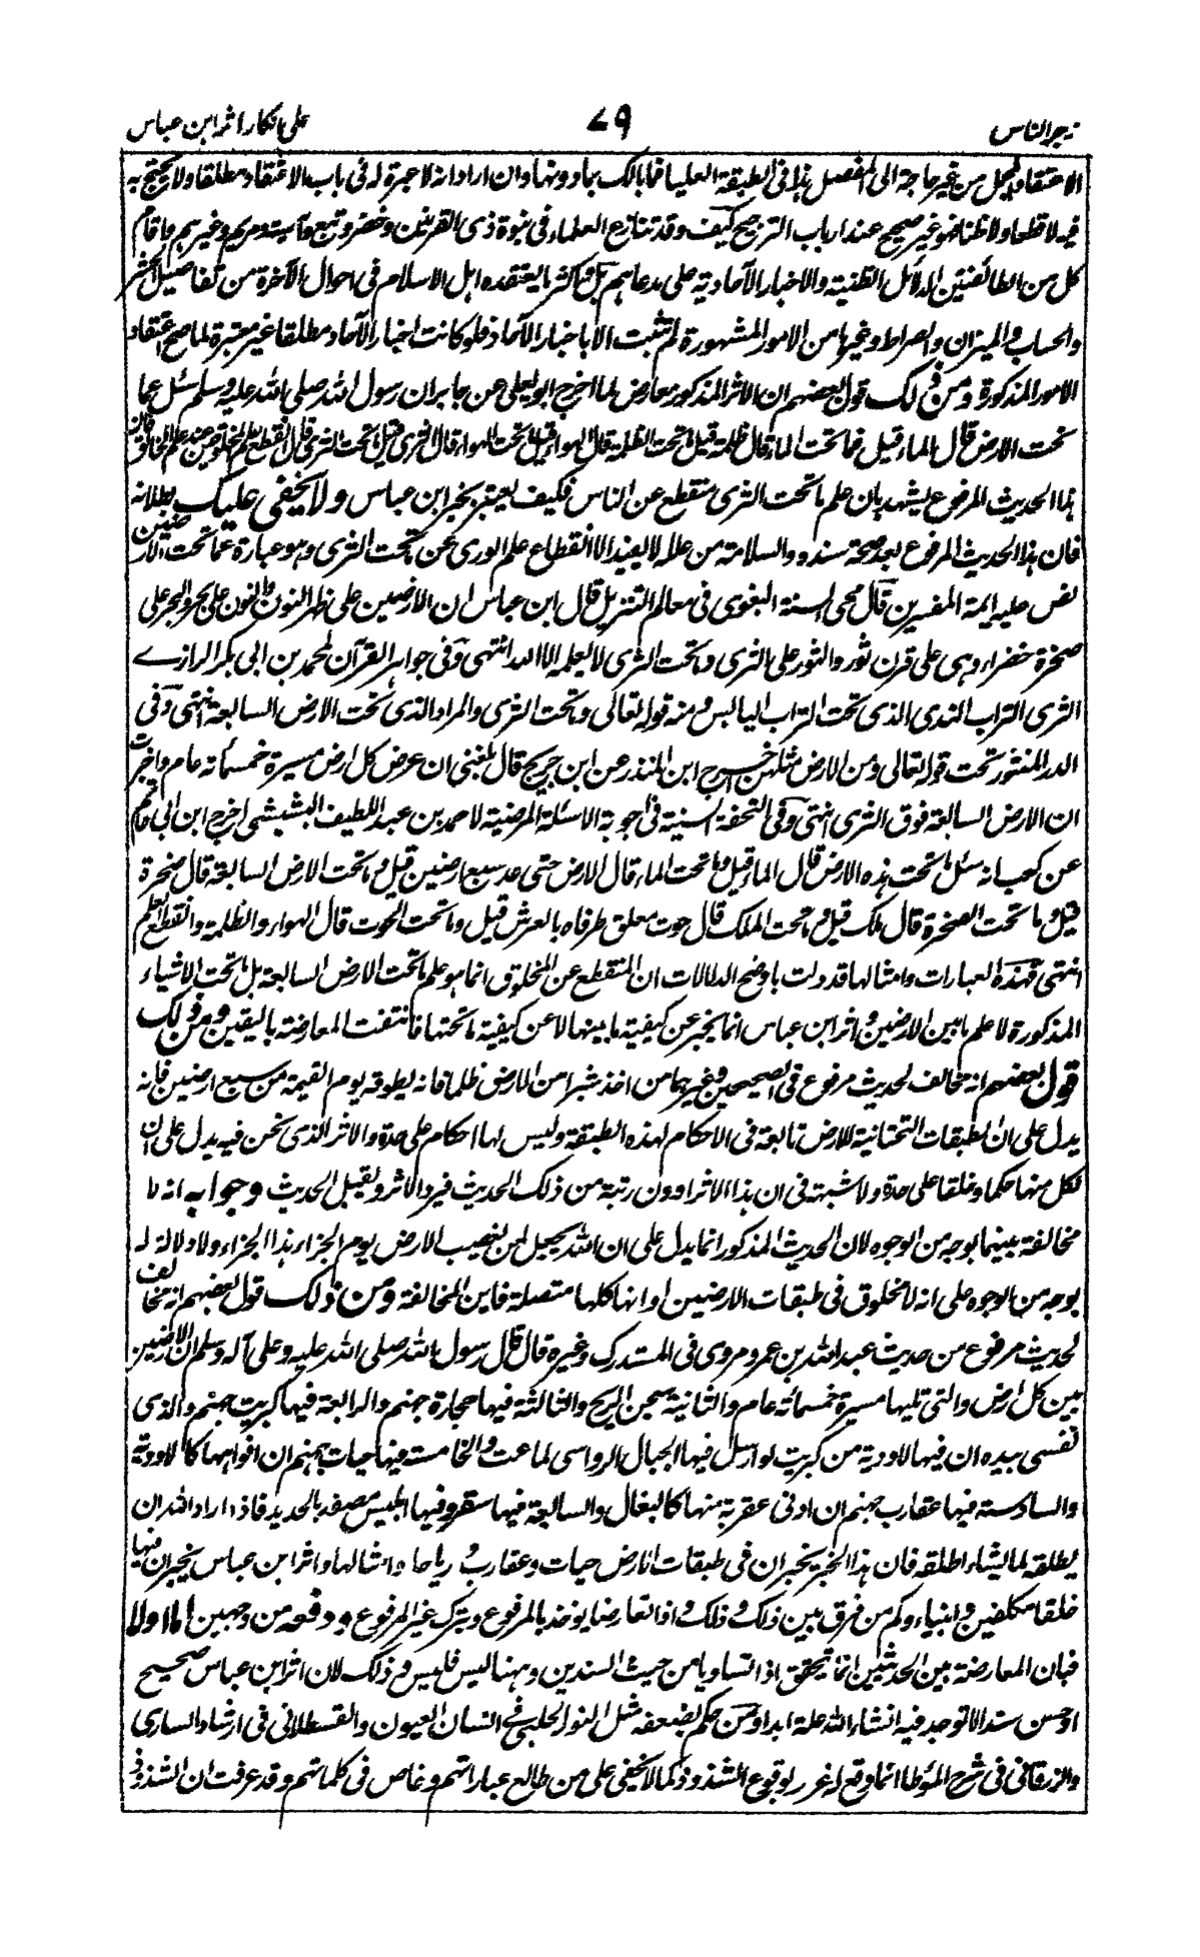 زجر الناس
٧٩
على انكار اثر ابن عباس
الاعتقاد المجمل من غير حاجة الى المفصل هذا فى الطبقة العليا فما بالك بما دونها وان اراد انه لا عبرة له فى باب الاعتقاد مطلقا ولا يحتج به
فيه لا قطعا ولا ظنا فهو غير صحيح عند ارباب الترجيح كيف وقد تنازع العلماء فى نبوة ذى القرنين وخضر وتبع وآسية ومريم وغيرهم واقام
كل من الطائفتين الدلائل الظنية والاخبار الآحادية على مدعاهم بل واكثر ما يعتقده اهل الاسلام فى احوال الآخرة من تفاصيل الحشر
والحساب والميزان والصراط وغيرها من الامور المشهورة لم تثبت الا باخبار الآحاد فلو كانت اخبار الآحاد مطلقا غير معتبرة لما صح اعتقاد
الامور المذكورة ومن ذلك قول بعضهم ان الاثر المذكور معارض لما اخرج ابو يعلى عن جابر ان رسول الله صلى الله عليه وسلم سئل عما
تحت الارض قال الماء قيل فما تحت الماء قال ظلمة قيل فما تحت الظلمة قال الهواء قيل فما تحت الهواء قال الثرى قيل فما تحت الثرى قال انقطع علم المخلوقين عند علم الخالق فان
هذا الحديث المرفوع يشهد بان علم ما تحت الثرى منقطع عن الناس فكيف يعتبر بخبر ابن عباس ولا يخفى عليك بطلانه
فان هذا الحديث المرفوع بعد صحة سنده والسلامة من علله لا يفيد الا انقطاع علم الورى عن ما تحت الثرى وهو عبارة عما تحت الارضين
نص عليه ايمة المفسرين قال محى السنة البغوى فى معالم التنزيل قال ابن عباس ان الارضين على ظهر النون والنون على بحر والبحر على
صخرة خضراء وهى على قرن ثور والثور على الثرى وما تحت الثرى لا يعلمه الا الله انتهى وفى جواهر القرآن لمحمد بن ابى بكر الرازى
الثرى التراب الندى الذى تحت التراب اليابس ومنه قوله تعالى وما تحت الثرى والمراد الذى تحت الارض السابعة انتهى وفى
الدر المنثور تحت قوله تعالى ومن الارض مثلهن اخرج ابن المنذر عن ابن جريج قال بلغنى ان عرض كل ارض مسيرة خمسمائة عام واخبرت
ان الارض السابعة فوق الثرى انتهى وفى التحفة السنية فى اجوبة الاسئلة المرضية لاحمد بن عبد اللطيف البشبشى اخرج ابن ابى حاتم
عن كعب انه سئل ما تحت هذه الارض قال الماء قيل وما تحت الماء قال الارض حتى عد سبع ارضين قيل وما تحت الارض السابعة قال صخرة
قيل وما تحت الصخرة قال ملك قيل وما تحت الملك قال حوت معلق طرفاه بالعرش قيل وما تحت الحوت قال الهواء والظلمة وانقطع العلم
انتهى فهذه العبارات وامثالها قد دلت باوضح الدلالات ان المنقطع عن المخلوق انما هو علم ما تحت الارض السابعة بل ما تحت الاشياء
المذكورة لا علم ما بين الارضين واثر ابن عباس انما يخبر عن كيفية ما بينها لا عن كيفية ما تحتها فانتفت المعارضة باليقين ومن ذلك
قول بعضهم انه مخالف لحديث مرفوع فى الصحيحين وغيرهما من اخذ شبرا من الارض ظلما فانه يطوقه يوم القيمة من سبع ارضين فانه
يدل على ان الطبقات التحتانية للارض تابعة فى الاحكام لهذه الطبقة وليس لها احكام على حدة والاثر الذى نحن فيه يدل على ان
لكل منها حكما وخلقا على حدة ولا شبهة فى ان هذا الاثر ادون رتبة من ذلك الحديث فيرد الاثر ويقبل الحديث وجوابه انه لا
مخالفة بينهما بوجه من الوجوه لان الحديث المذكور انما يدل على ان الله يجعل لمن غصب الارض يوم الجزاء هذا الجزاء ولا دلالة له
بوجه من الوجوه على انه لا مخلوق فى طبقات الارضين او انها كلها متصلة فاين المخالفة ومن ذلك قول بعضهم انه مخالف
لحديث مرفوع من حديث عبد الله بن عمرو مروى فى المستدرك وغيره قال قال رسول الله صلى الله عليه وعلى آله وسلم ان الارضين
بين كل ارض والتى تليها مسيرة خمسمائة عام والثانية سجن الريح والثالثة فيها حجارة جهنم والرابعة فيها كبريت جهنم والذى
نفسى بيده ان فيها لاودية من كبريت لو ارسل فيها الجبال الرواسى لماعت والخامسة فيها حيات جهنم ان افواهها كالاودية
والسادسة فيها عقارب جهنم ان ادنى عقربة منها كالبغال والسابعة فيها سقر وفيها ابليس مصفد بالحديد فاذا اراد الله ان
يطلقه لما يشاء اطلقه فان هذا الخبر يخبر ان فى طبقات الارض حيات وعقارب ورياحا وامثالها واثر ابن عباس يخبر ان فيها
خلقا مكلفين وانبياء وكم من فرق بين ذلك وذلك واذا تعارضا يوخذ بالمرفوع ويترك غير المرفوع ودفعه من وجهين اما اولا
فبان المعارضة بين الحديثين انما تتحقق اذا تساويا من حيث السندين وههنا ليس فليس وذلك لان اثر ابن عباس صحيح
او حسن سندا لا توجد فيه انشاء الله علة ابدا ومن حكم بضعفه مثل النور الحلبى فى انسان العيون والقسطلانى فى ارشاد السارى
والزرقانى فى شرح المؤطا انما وقع له غرر بوقوع الشذوذ كما لا يخفى على من طالع عباراتهم وغاص فى كلماتهم وقد عرفت ان الشذوذ